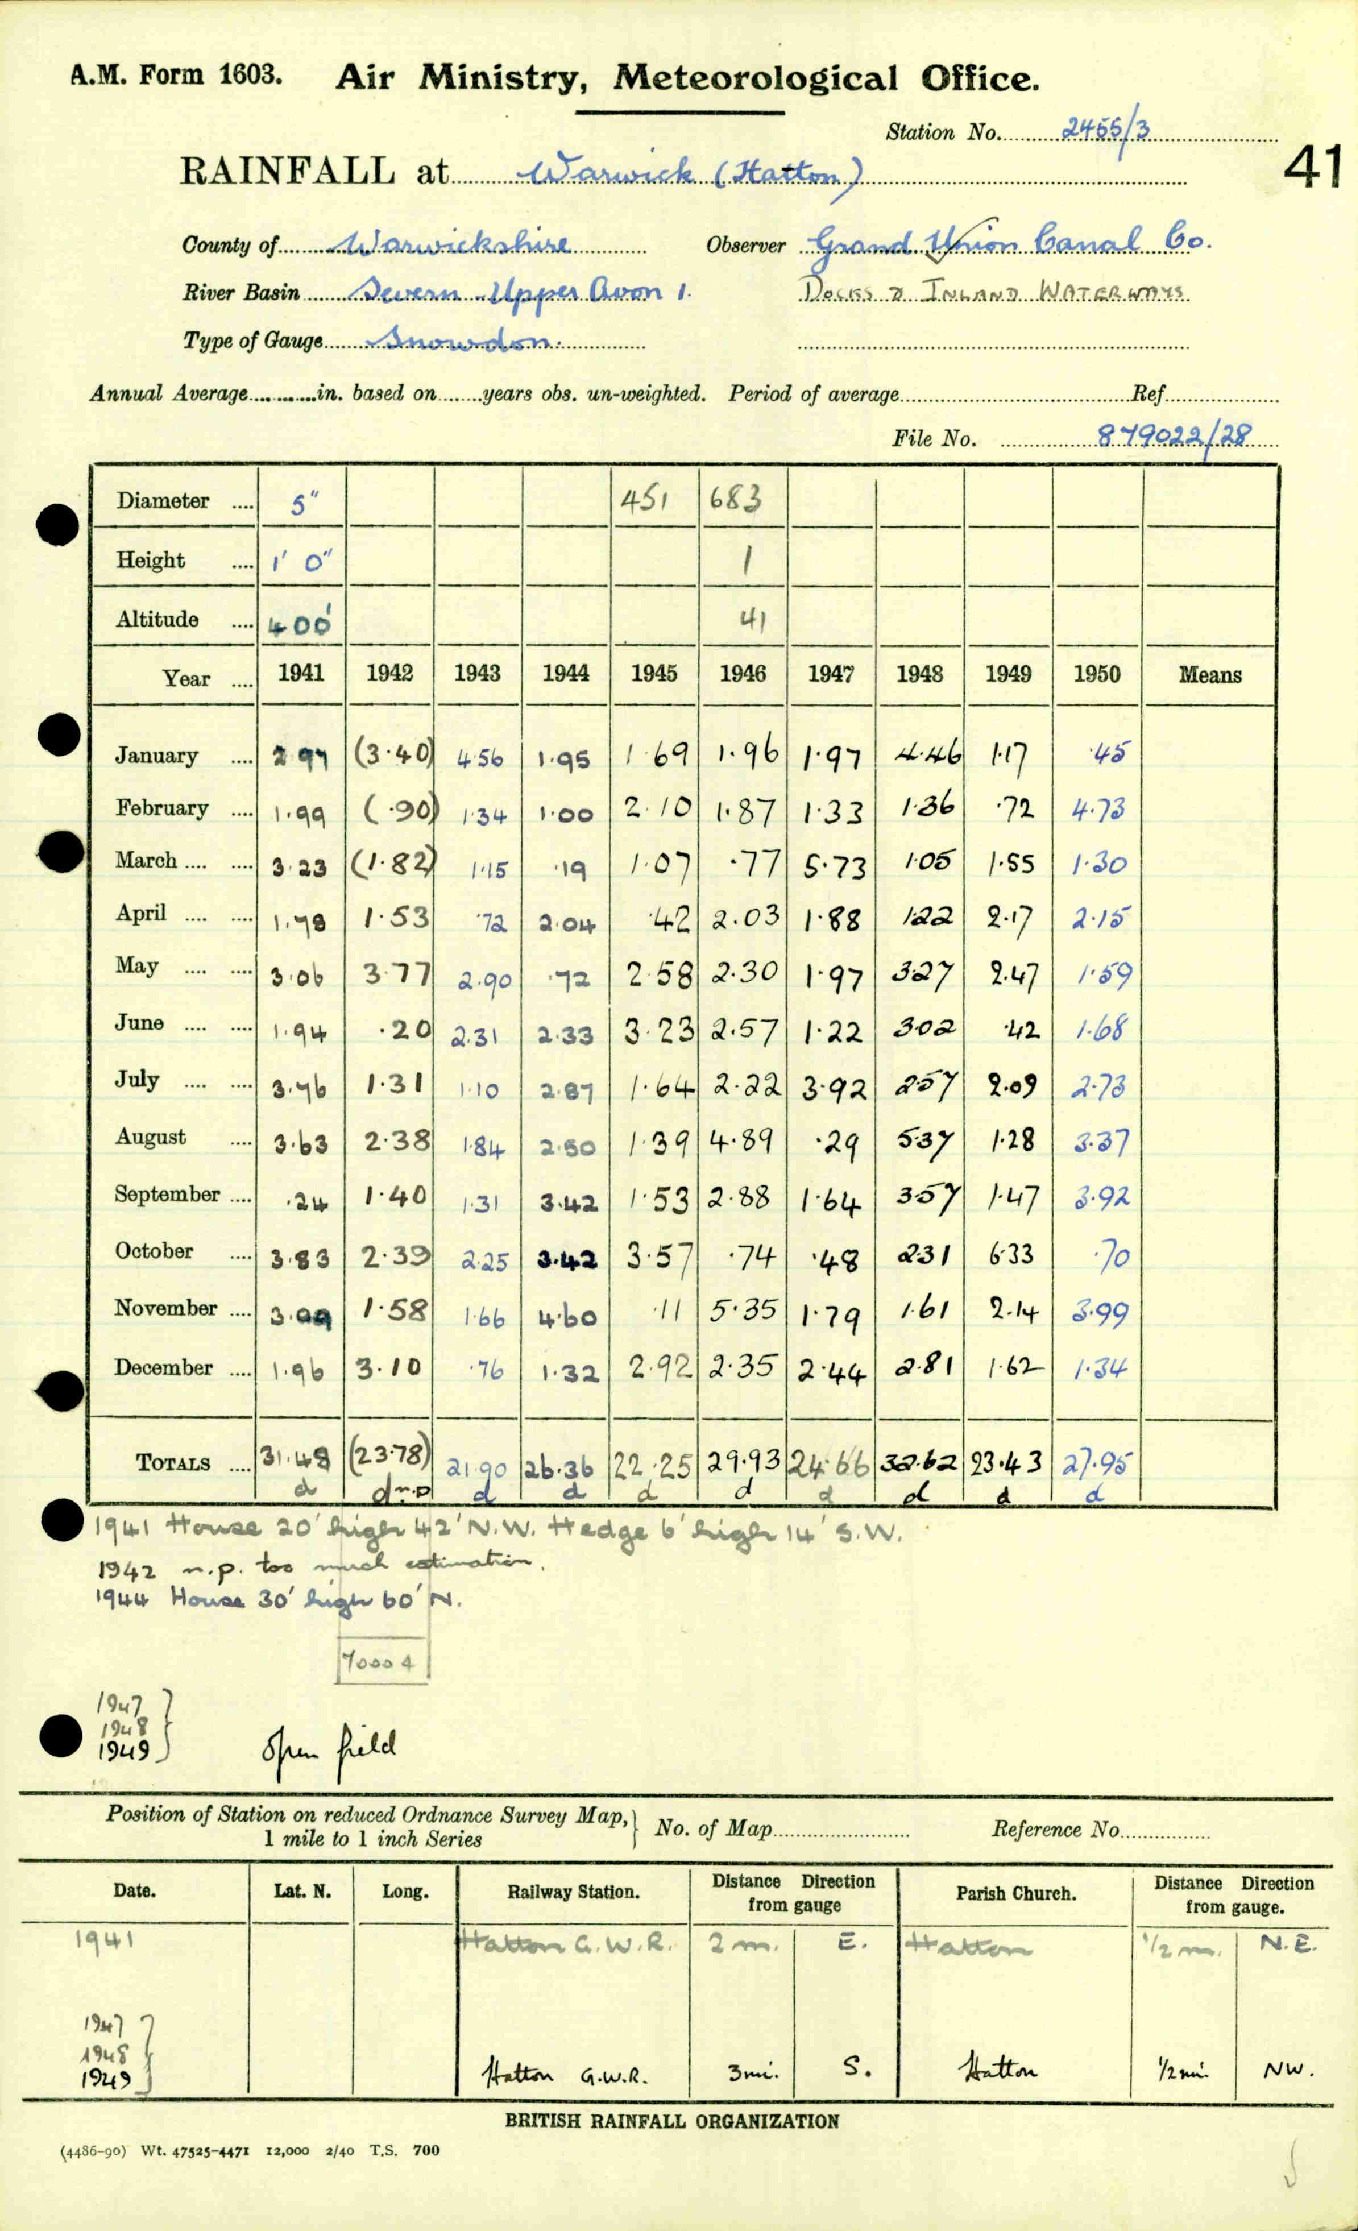 A.M. Form 1603. Air Ministry, Meteorological Office.
Station No. 2455/3
41
RAINFALL at Warwick (Hatton)
County of Warwickshire Observer Grand Union Canal Co.
River Basin Severn - Upper Avon 1. DOCKS & INLAND WATERWAYS
Type of Gauge Snowdon.
Annual Average in. based on years obs. un-weighted. Period of average Ref
File No. 879022/28
Diameter 5" 451 683
Height 1' 0" 1
Altitude 400' 41
Year 1941 1942 1943 1944 1945 1946 1947 1948 1949 1950 Means
January 2.97 (3.40) 4.56 1.95 1.69 1.96 1.97 4.46 1.17 .45
February 1.99 (.90) 1.34 1.00 2.10 1.87 1.33 1.36 .72 4.73
March 3.23 (1.82) 1.15 .19 1.07 .77 5.73 1.05 1.55 1.30
April 1.78 1.53 .72 2.04 .42 2.03 1.88 1.22 2.17 2.15
May 3.06 3.77 2.90 .72 2.58 2.30 1.97 3.27 2.47 1.59
June 1.94 .20 2.31 2.33 3.23 2.57 1.22 3.02 .42 1.68
July 3.76 1.31 1.10 2.87 1.64 2.22 3.92 2.57 2.09 2.73
August 3.63 2.38 1.84 2.50 1.39 4.89 .29 5.37 1.28 3.37
September .24 1.40 1.31 3.42 1.53 2.88 1.64 3.57 1.47 3.92
October 3.83 2.39 2.25 3.42 3.57 .74 .48 2.31 6.33 .70
November 3.09 1.58 1.66 4.60 .11 5.35 1.79 1.61 2.14 3.99
December 1.96 3.10 .76 1.32 2.92 2.35 2.44 2.81 1.62 1.34
TOTALS 31.48 (23.78) 21.90 26.36 22.25 29.93 24.66 32.62 23.43 27.95
d d n.p d d d d d d d d
1941 House 20' high 42' N.W. Hedge 6' high 14' S.W.
1942 n.p. too much estimation.
1944 House 30' high 60' N.
7000 4
1947
1948
1949 open field
Position of Station on reduced Ordnance Survey Map, 1 mile to 1 inch Series No. of Map Reference No.
Date. Lat. N. Long. Railway Station. Distance Direction from gauge Parish Church. Distance Direction from gauge.
1941 Hatton G.W.R. 2 m. E. Hatton 1/2 m. N.E.
1947
1948
1949 Hatton G.W.R. 3 mi. S. Hatton 1/2 mi. NW.
BRITISH RAINFALL ORGANIZATION
(4486-90) Wt. 47525-4471 12,000 2/40 T.S. 700